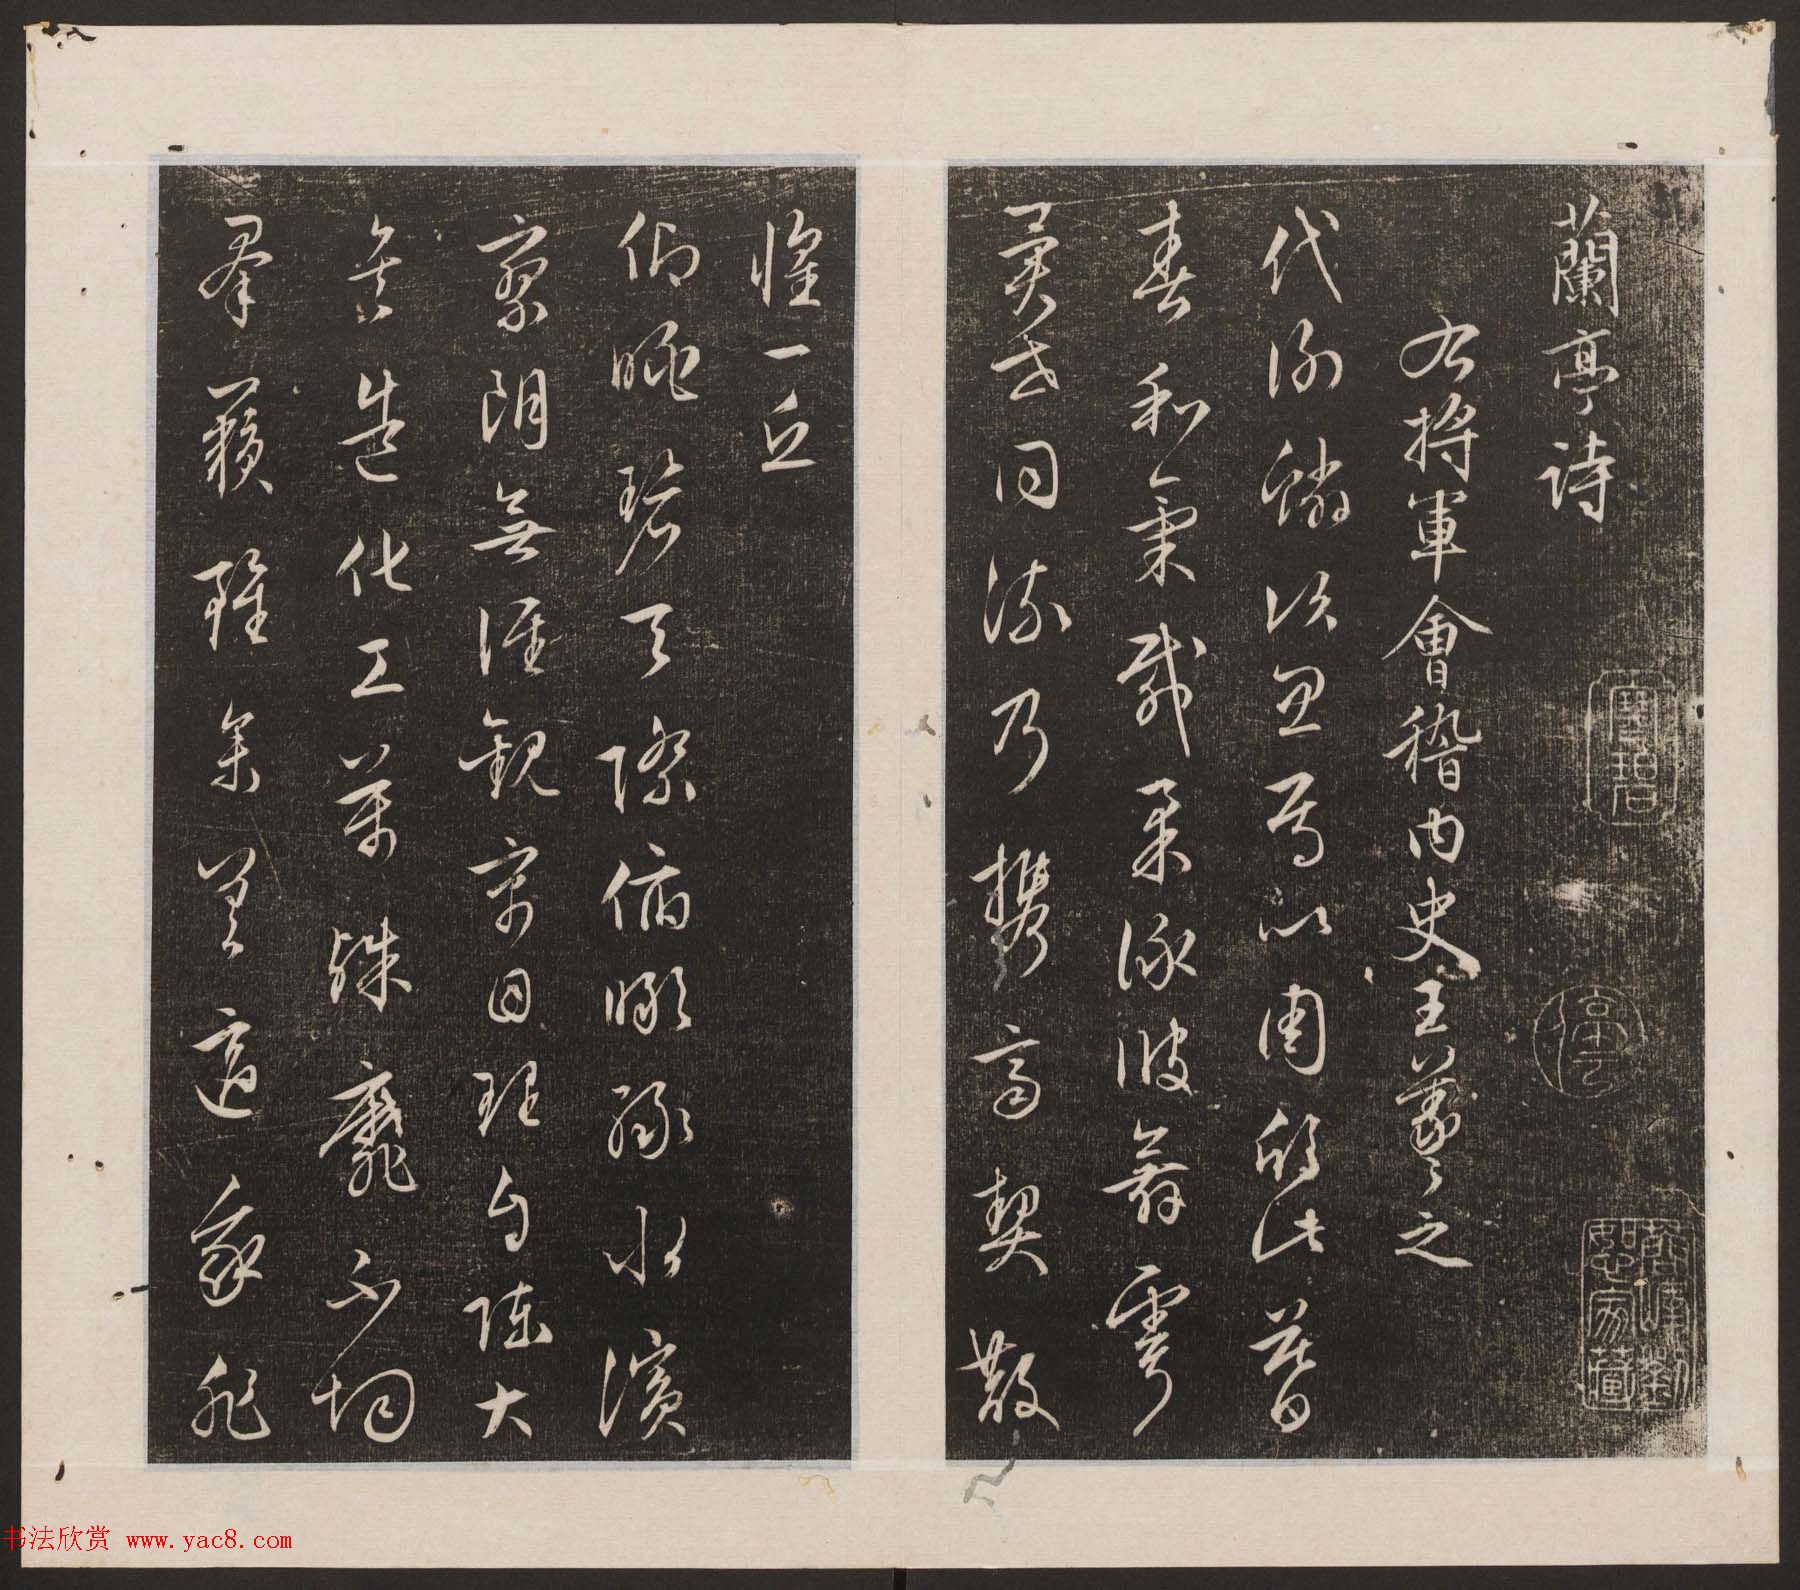 蘭亭詩
右將軍會稽內史王羲之
代謝鱗次忽焉以周欣此暮
春和氣載柔詠彼舞雩
異世同流乃攜齊契散
懷一丘
仰眺碧天際俯瞰緑水濱
寥朗無涯觀寓目理自陳大
矣造化工萬殊靡不均
羣籟雖參差適我非
寒碧
停雲
蓉峰劉
恕家藏
书法欣赏 www.yac8.com